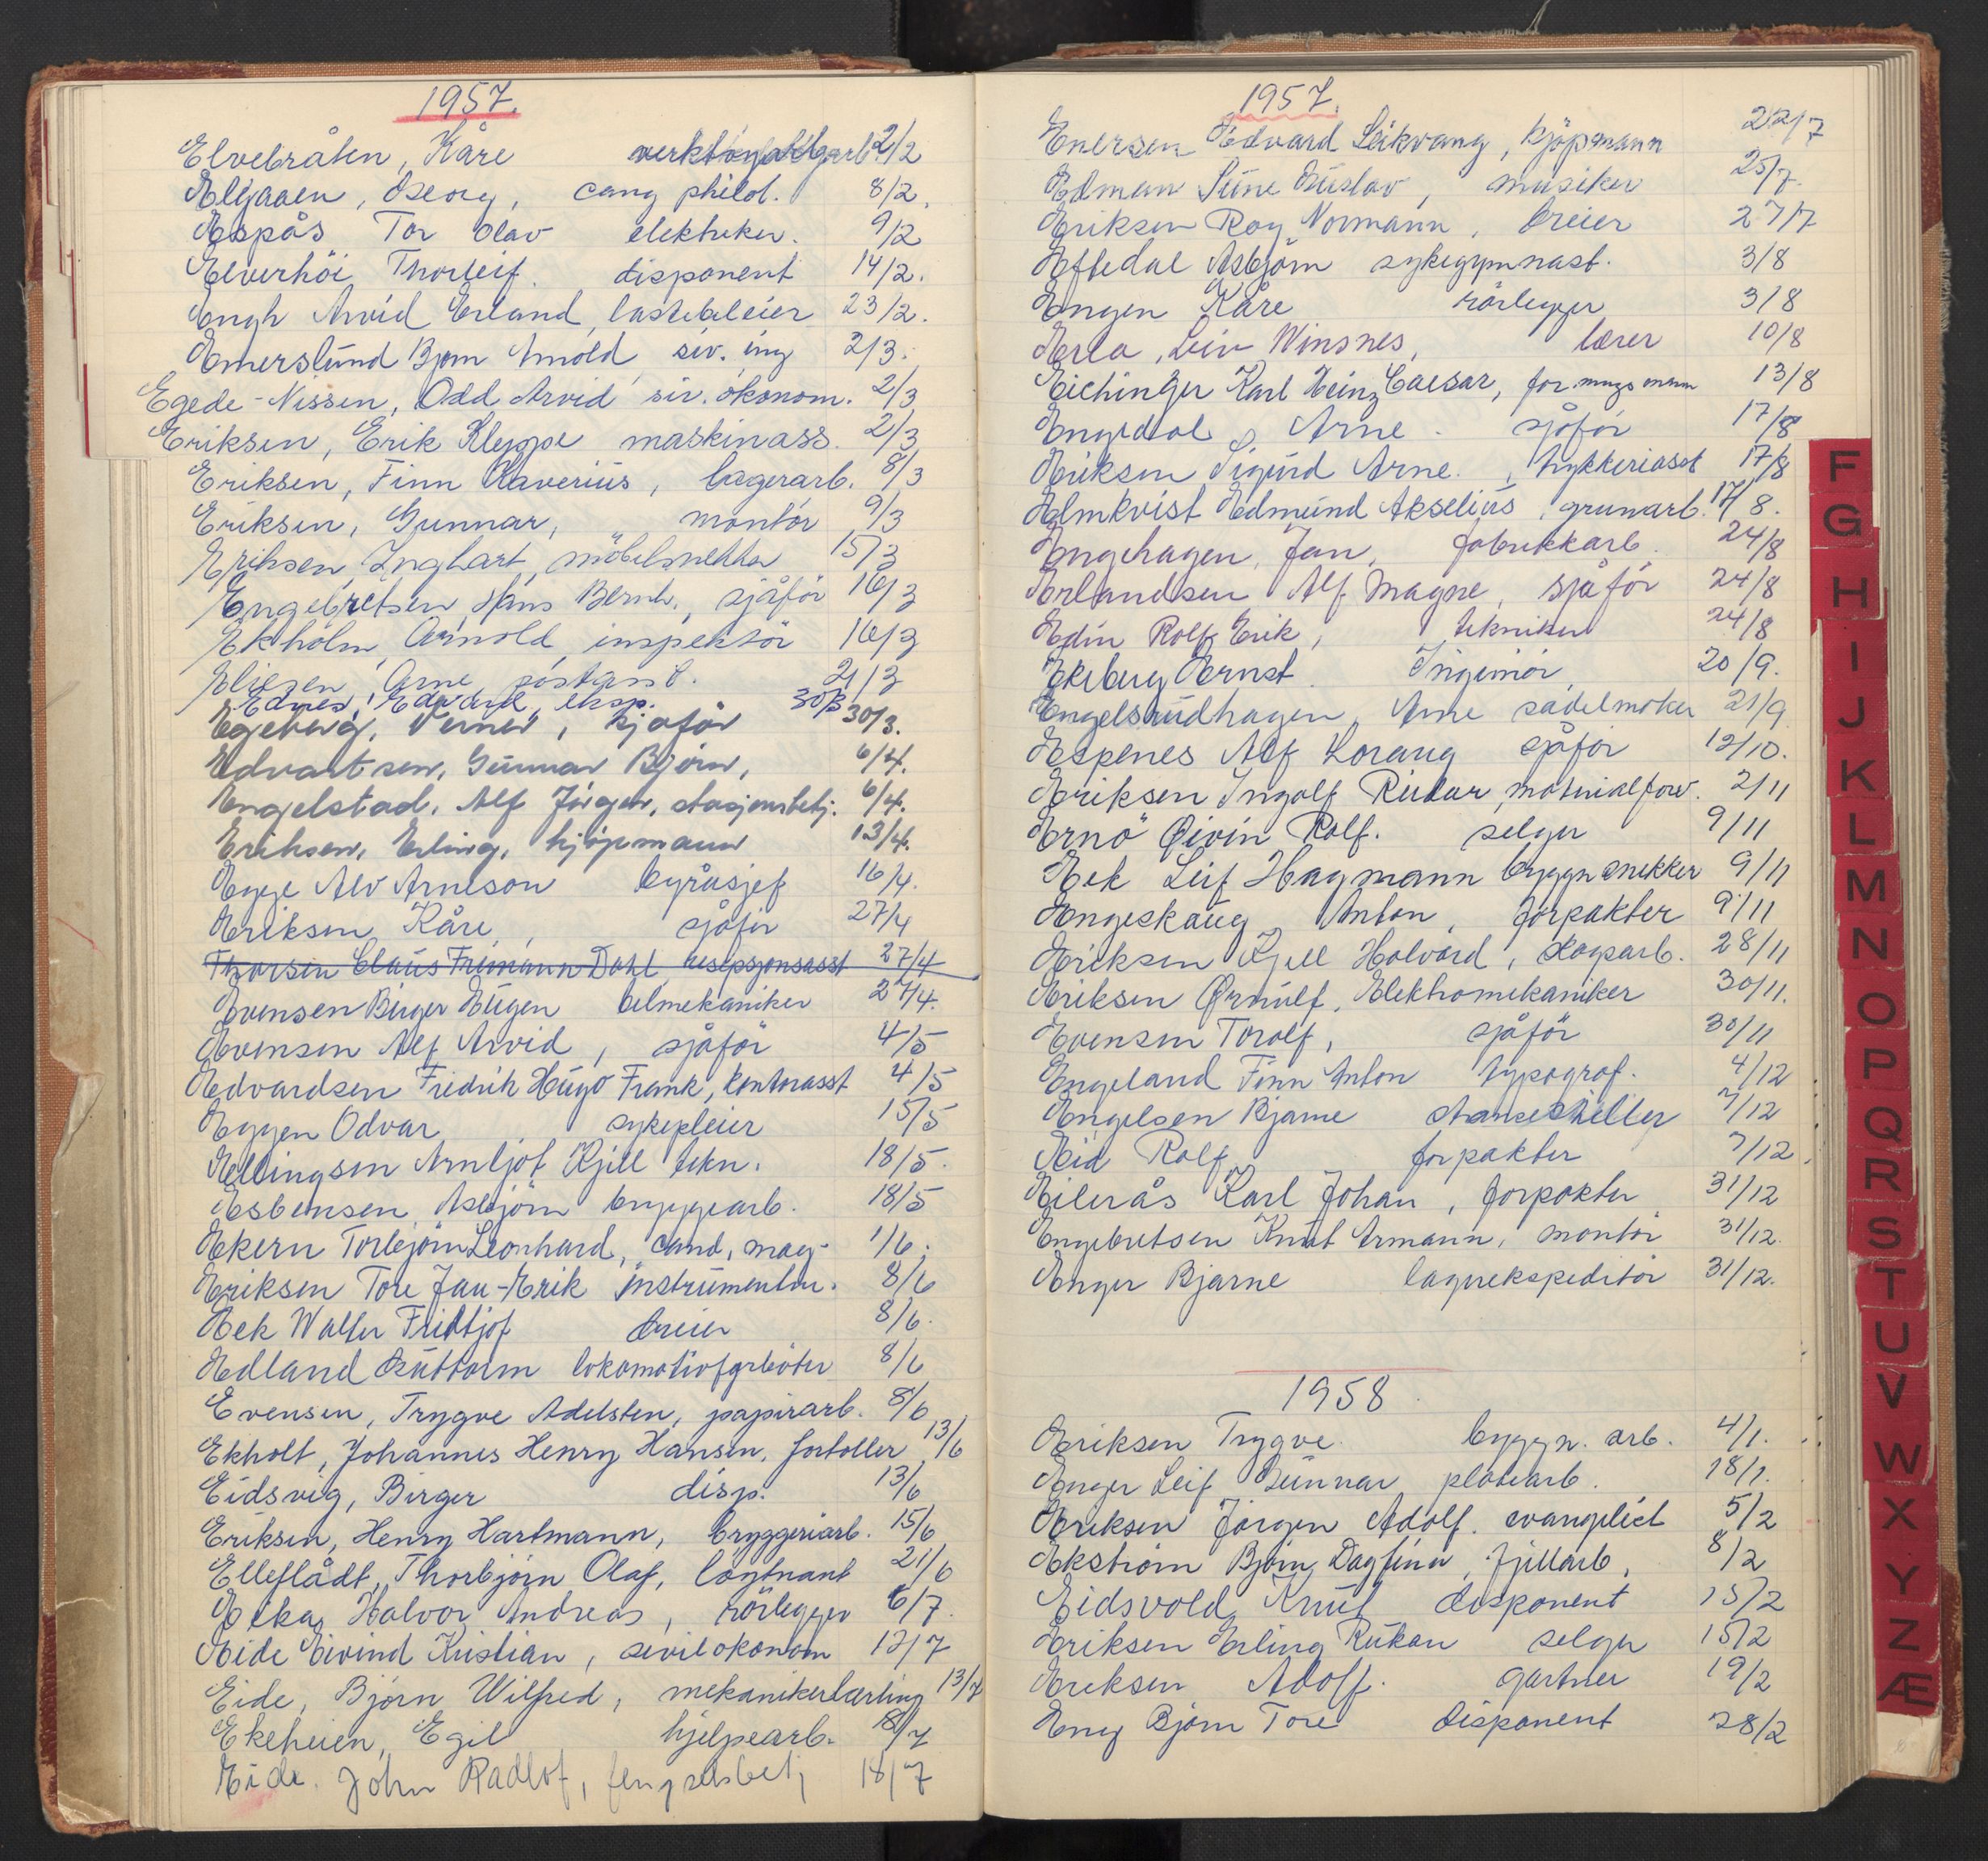 1957.
Elvebråten, Kåre 2/2
Elgaaen, Georg, cang philol. 8/2.
Espås Tor Olav elektriker. 9/2
Elverhöi Thorleif. disponent 14/2.
Engh Arvid Erland, lastebileier 23/2.
Emerslund Bjørn Arnold siv. ing 2/3.
Egede-Nissen, Odd Arvid siv. økonom. 2/3
Eriksen, Erik Kleppe maskinass. 2/3
Eriksen, Finn Xaverius, lagerarb. 8/3
Eriksen, Gunnar, montör 9/3
Eriksen, Inghart, möbelsnekker 15/3
Engebretsen, Hans Bernh., sjåför 16/3
Ekholm, Arnold, inspektör 16/3
Eliesen Arne postass. 21/3
Ednes, Edvard, eksp. 30/3
Egeberg, Verner, sjåför 30/3.
Edvartsen, Gunnar Björn, 6/4.
Engelstad, Alf Jörgen, stasjonsbetj. 6/4.
Eriksen, Erling, kjöpmann 13/4.
Egge Alv Arneson byråsjef 16/4.
Eriksen Kåre, sjåfør 27/4
Thorsen Claus Frimann Dahl, resepsjonsasst 27/4
Evensen Birger Eugen bilmekaniker 27/4.
Evensen Alf Arvid, sjåför 4/5
Edvardsen Fredrik Hugo Frank, kontorasst 4/5
Eggen Odvar sykepleier 15/5
Ellingsen Arnljot Kjell tekn. 18/5.
Esbensen Asbjörn byggearb. 18/5
Ekern Torbjörn Leonhard, cand. mag. 1/6.
Eriksen Tore Jan-Erik instrumentm. 8/6
Eek Walter Fridtjof dreier 8/6.
Edland Guttorm lokomotivfyrböter 8/6
Evensen, Trygve Adelsten, papirarb. 8/6
Ekholt, Johannes Henry Hansen, fortoller 13/6
Eidsvig, Birger disp. 13/6
Eriksen, Henry Hartmann, bryggeriarb. 15/6
Elleflådt, Thorbjörn Olaf, löytnant 21/6
Eika, Halvor Andreas, rörlegger 6/7
Eide Eivind Kristian, sivilökonom 12/7
Eide, Björn Wilfred, mekanikerlærling 13/7
Ekeheien, Egil hjelpearb. 18/7
Eide. John Radlof, fengselsbetj 18/7
1957.
Enersen Edvard Leikvang, kjöpmann 22/7
Edman Sune Gustav, musiker 25/7.
Eriksen Roy Normann, dreier 27/7
Eftedal Asbjörn sykegymnast. 3/8
Engen Kåre rörlegger 3/8
Erla, Liv Winsnes, lærer 10/8
Eichinger Karl Heinz Caesar, formingsmann 13/8
Engedal, Arne. sjåfør 17/8
Eriksen Sigurd Arne., trykkeriasst 17/8
Elmkvist Edmund Akselius, grunarb. 17/8.
Engehagen, Jan, fabrikkarb. 24/8
Erlandsen Alf Magne, sjåför 24/8
Edin Rolf Erik, tekniker 24/8
Ekeberg Ernst. Ingeniør 20/9.
Engelsrudhagen, Arne sadelmaker 21/9
Espenes Alf Korang sjåför 12/10.
Eriksen Ingolf Reidar, materialforv. 2/11
Ernö Øivin Rolf. selger 9/11
Eek Leif Hagmann bygn snekker 9/11
Engeskaug Anton, forpakter 9/11
Eriksen Kjell Halvard, skogsarb. 28/11
Eriksen Ørnulf, Elektromekaniker 30/11.
Evensen Torolf, sjåför 30/11
Engeland Finn Anton typograf. 4/12
Engelsen Bjarne 7/12
Eid Rolf forpakter 7/12.
Eilerås Karl Johan, forpakter 31/12
Engebretsen Knut Armann, montör 31/12.
Enger Bjarne lagerekspeditör 31/12.
1958
Eriksen Trygve. byggn. arb. 4/1.
Enger Leif Gunnar platearb. 18/1.
Eriksen Jörgen Adolf. evangelist 5/2
Ekström Björn Dagfinn, fjellarb, 8/2
Eidsvold Knut disponent 15/2
Eriksen Erling Rukan selger 15/2
Eriksen Adolf. gartner 19/2
Eng Björn Tore disponent 28/2
F
G
H
I
J
K
L
M
N
O
P
Q
R
S
T
U
V
W
X
Y
Z
Æ